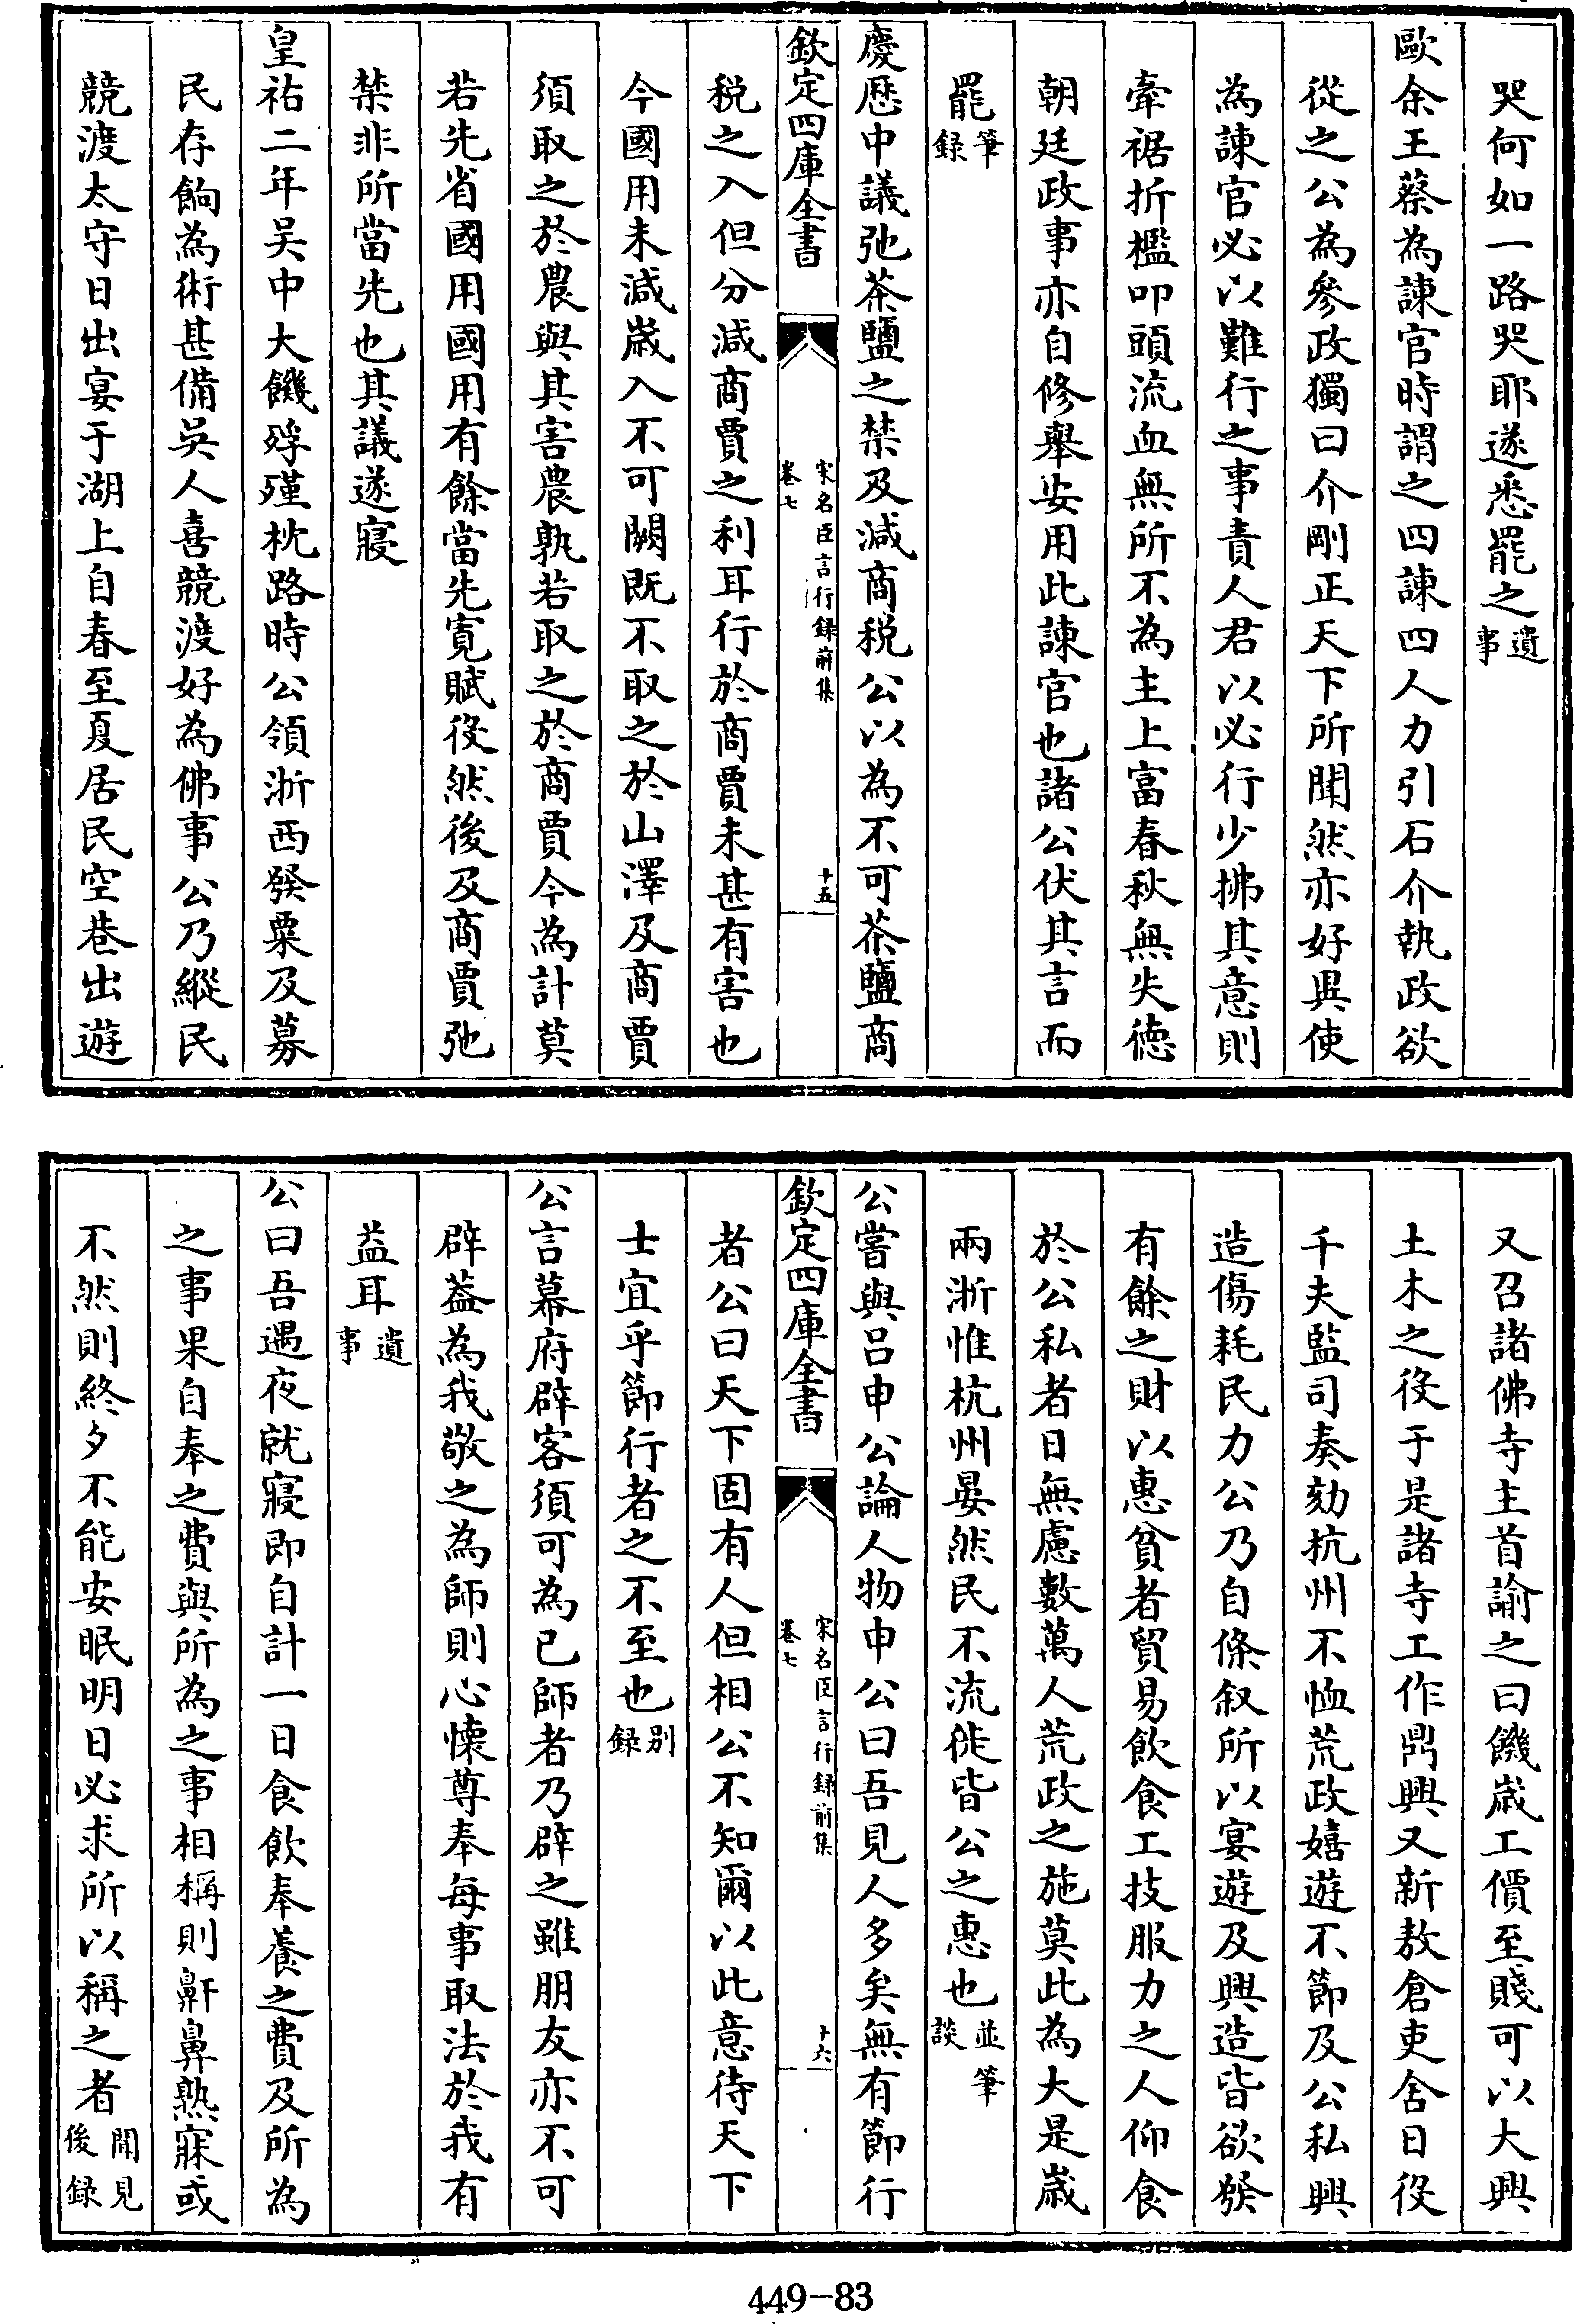 哭何如一路哭耶遂悉罷之遺事
歐余王蔡為諫官時謂之四諫四人力引石介執政欲
從之公為參政獨曰介剛正天下所聞然亦好異使
為諫官必以難行之事責人君以必行少拂其意則
牽裾折檻叩頭流血無所不為主上富春秋無失德
朝廷政事亦自修舉安用此諫官也諸公伏其言而
罷筆録
慶厯中議弛茶鹽之禁及減商税公以為不可茶鹽商
欽定四庫全書
宋名臣言行録前集
卷七
十五
税之入但分減商賈之利耳行於商賈未甚有害也
今國用未減嵗入不可闕既不取之於山澤及商賈
須取之於農與其害農孰若取之於商賈今為計莫
若先省國用國用有餘當先寛賦役然後及商賈弛
禁非所當先也其議遂寢
皇祐二年吴中大饑殍殣枕路時公領浙西發粟及募
民存餉為術甚備吳人喜競渡好為佛事公乃縱民
競渡太守日出宴于湖上自春至夏居民空巷出遊
又召諸佛寺主首諭之曰饑嵗工價至賤可以大興
土木之役于是諸寺工作鼎興又新敖倉吏舍日役
千夫監司奏劾杭州不恤荒政嬉遊不節及公私興
造傷耗民力公乃自條叙所以宴遊及興造皆欲發
有餘之財以惠貧者貿易飲食工技服力之人仰食
於公私者日無慮數萬人荒政之施莫此為大是嵗
兩浙惟杭州晏然民不流徙皆公之惠也並筆談
公嘗與吕申公論人物申公曰吾見人多矣無有節行
欽定四庫全書
宋名臣言行録前集
卷七
十六
者公曰天下固有人但相公不知爾以此意待天下
士宜乎節行者之不至也别録
公言幕府辟客須可為已師者乃辟之雖朋友亦不可
辟葢為我敬之為師則心懷尊奉每事取法於我有
益耳遺事
公曰吾遇夜就寢即自計一日食飲奉養之費及所為
之事果自奉之費與所為之事相稱則鼾鼻熟寐或
不然則終夕不能安眠明日必求所以稱之者聞見後録
449-83